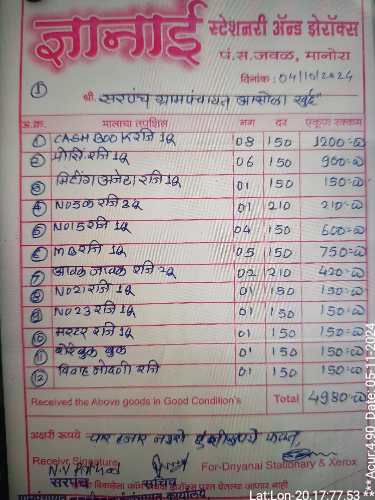 ज्ञानाई स्टेशनरी अँन्ड झेरॉक्स
पं.स.जवळ, मानोरा
दिनांक : 04/10/2024
① श्री. सरपंच ग्रामपंचायत आसोला खुर्द"
अ.क्र. मालाचा तपशिल नग दर एकूण रक्कम
① CASH BOOK रजि 1Q 08 150 1200=00
② रजि 1Q 06 150 900=00
③ मिटींग अजेंडा रजि 1Q 01 150 150=00
④ NO5 रजि 2Q 01 210 210=00
⑤ NO15 रजि 1Q 04 150 600=00
⑥ MB रजि 1Q 05 150 750=00
⑦ आवक जावक रजि 2Q 02 210 420=00
⑧ NO21 रजि 1Q 01 150 150=00
⑨ NO23 रजि 1Q 01 150 150=00
⑩ मस्टर रजि 1Q 01 150 150=00
⑪ बुक 01 150 150=00
⑫ विवाह नोंदणी रजि 01 150 150=00
Received the Above goods in Good Condition's Total 4980=00
अक्षरी रूपये चार हजार नऊशे ऐंशी रुपये फक्त,
Receivr Signature For-Dnyanai Stationary & Xerox
सरपंच सचिव
विकलेला घेतल्या जाणार नाही
Lat:Lon-20.17:77.53
***Acur:4.90 Date: 05-11-2024 ***